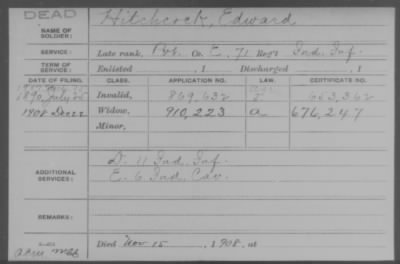 DEAD
NAME OF SOLDIER:
Hitchcock, Edward
SERVICE:
Late rank, Pvt. Co. E, 71 Reg't Ind. Inf.
TERM OF SERVICE:
Enlisted , 1 Discharged , 1
DATE OF FILING. CLASS. APPLICATION NO. LAW. CERTIFICATE NO.
1890 July 25 Invalid, 869,632 653,362
1908 Dec 22 Widow, 910,223 a 676,247
Minor,
ADDITIONAL SERVICES:
D. 11 Ind. Inf.
E. 6 Ind. Cav.
REMARKS:
Died Nov 15, 1908, at